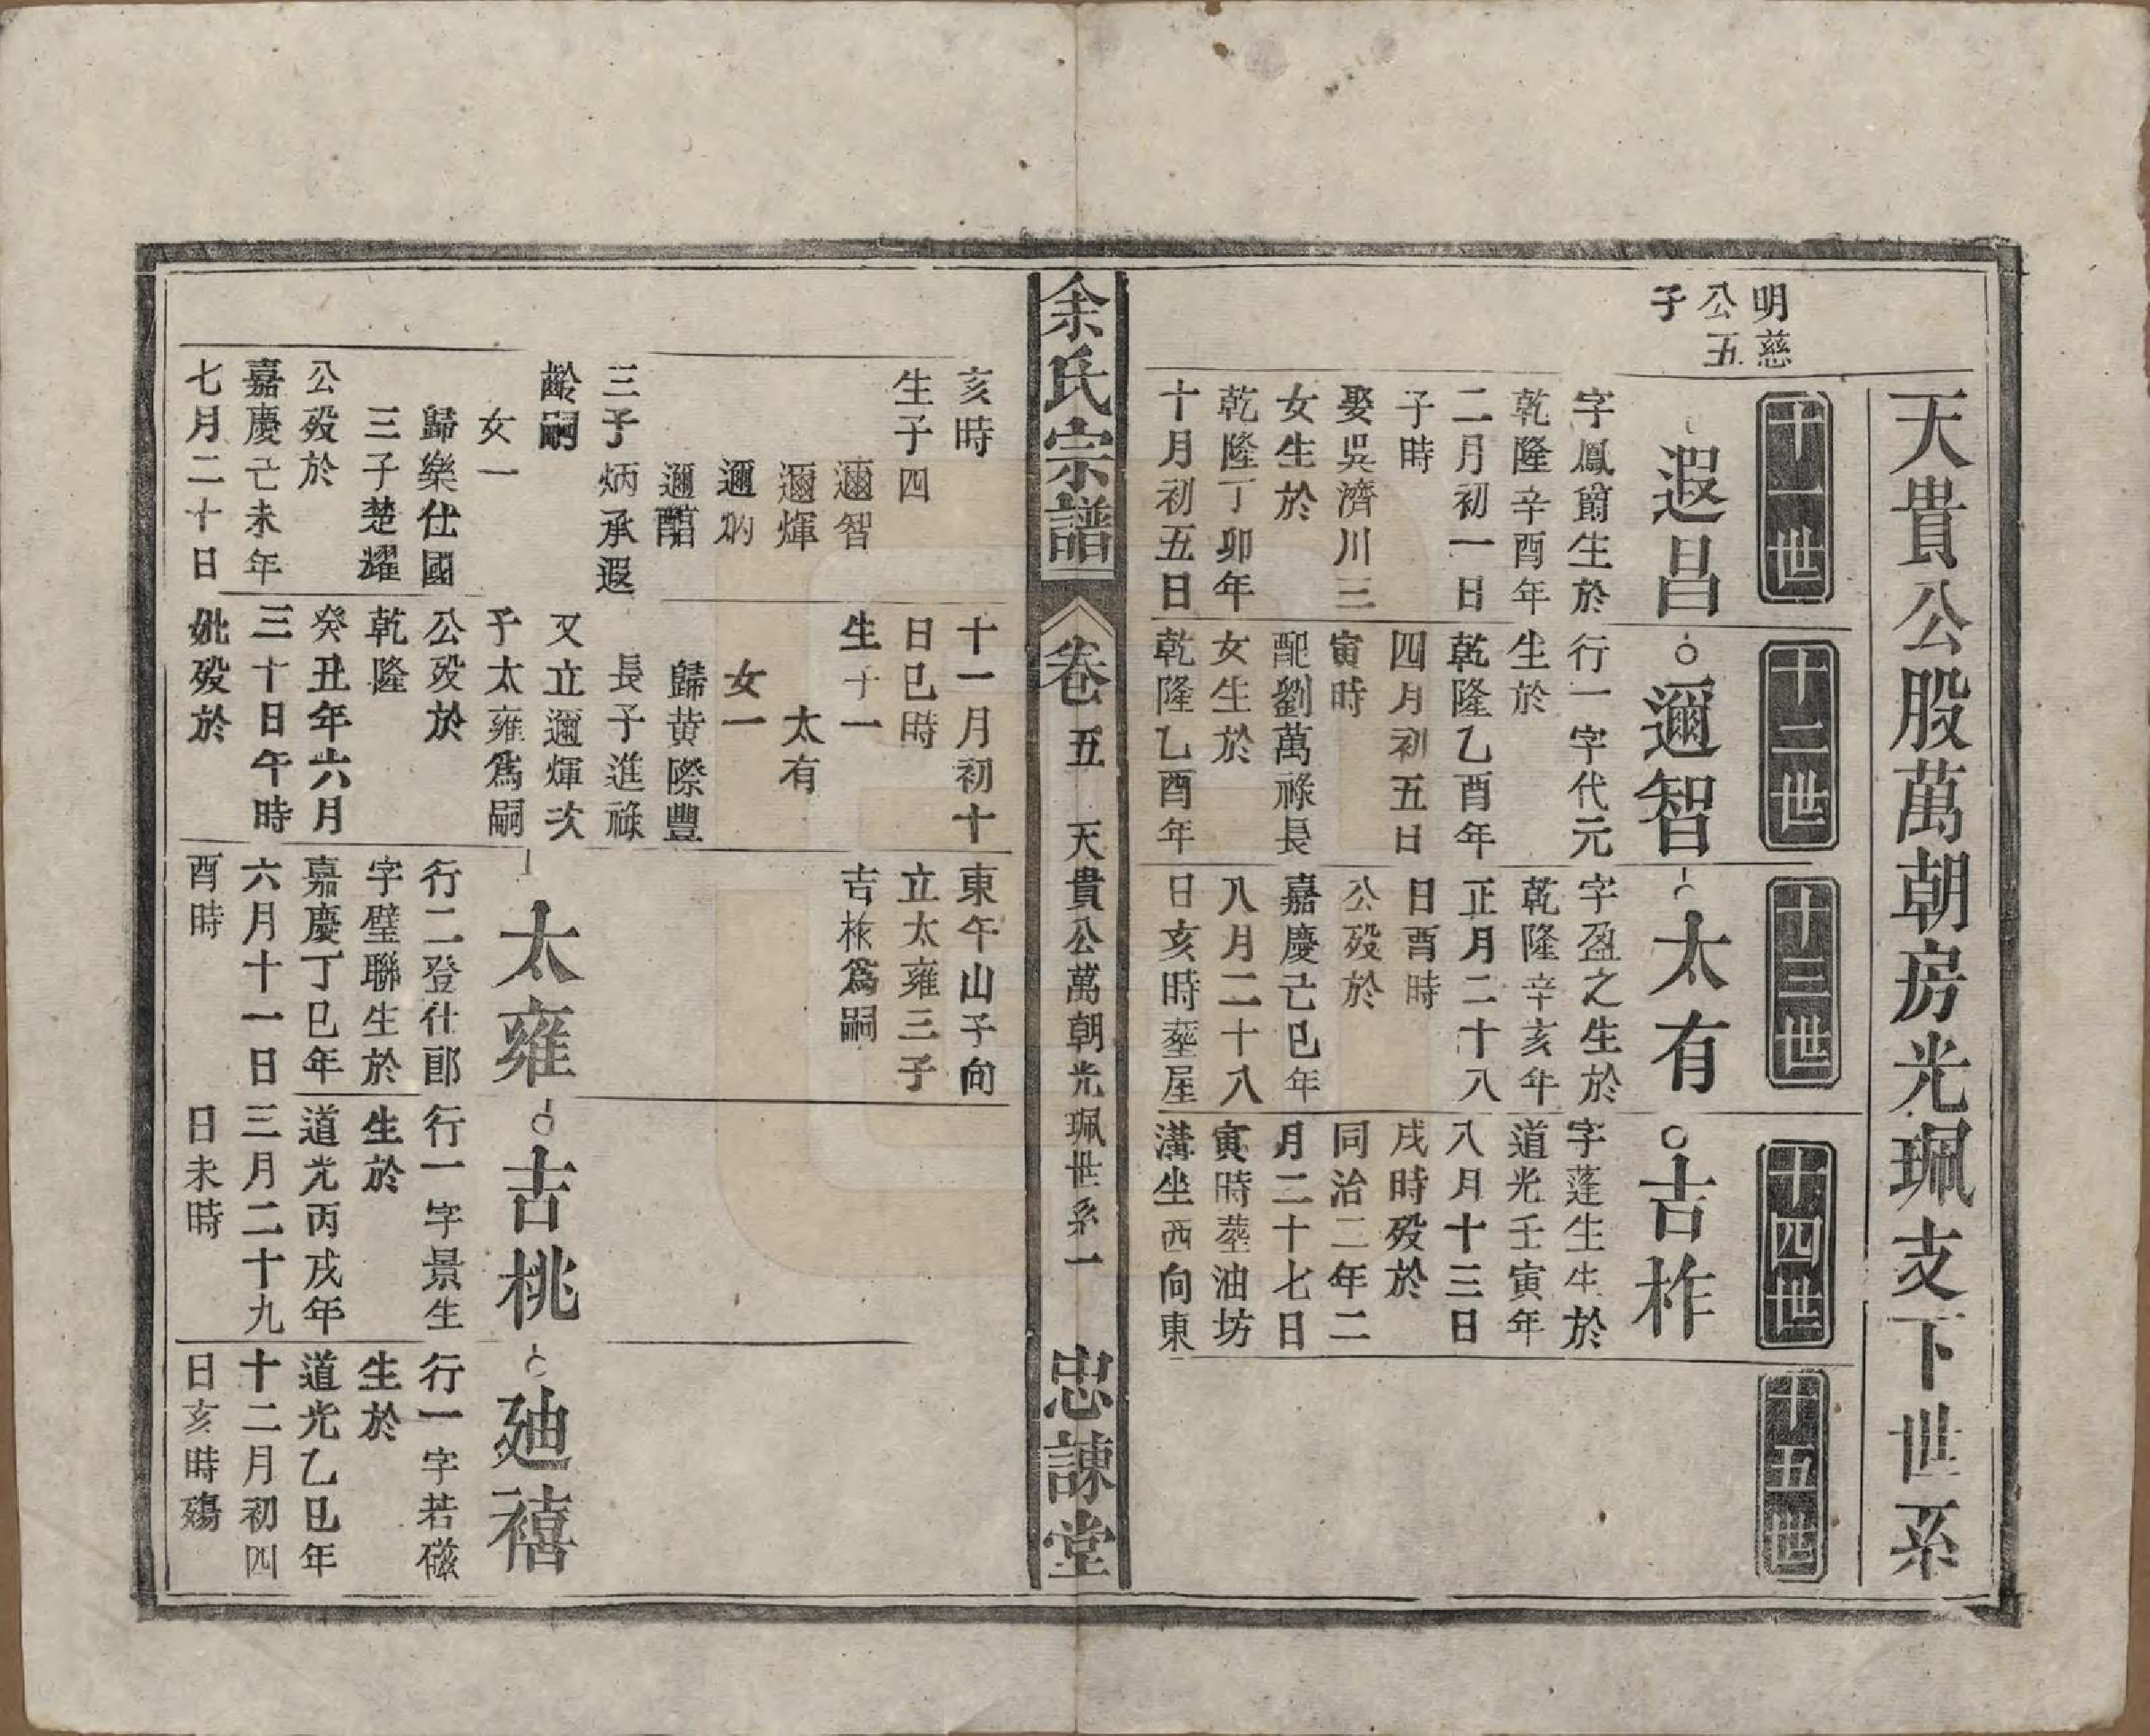 天貴公股萬朝房光珮支下世系
明慈
公五
子
十一世
遐昌
字鳳爾生於
乾隆辛酉年
二月初一日
子時
娶吳濟川三
女生於
乾隆丁卯年
十月初五日
十二世
邇智
行一字代元
生於
乾隆乙酉年
四月初五日
寅時
配劉萬祿長
女生於
乾隆乙酉年
十三世
太有
字盈之生於
乾隆辛亥年
正月二十八
日酉時
公歿於
嘉慶己巳年
八月二十八
日亥時塟屋
十四世
吉柞
字蓬生生於
道光壬寅年
八月十三日
戌時歿於
同治二年二
月二十七日
寅時塟油坊
溝坐西向東
十五世
余氏宗譜
卷五
天貴公萬朝光珮世系一
忠諫堂
亥時
生子四
邇智
邇煇
邇炳
邇醕
三子炳承遐
齡嗣
女一
歸樂仕國
三子楚耀
公歿於
嘉慶己未年
七月二十日
十一月初十
日巳時
生子一
太有
女一
歸黄際豐
長子進祿
又立邇煇次
子太雍爲嗣
公歿於
乾隆
癸丑年六月
三十日午時
妣歿於
東午山子向
立太雍三子
吉柞爲嗣
太雍
行二登仕郎
字璧聯生於
嘉慶丁巳年
六月十一日
酉時
吉桃
行一字景生
生於
道光丙戌年
三月二十九
日未時
廸禧
行一字若磁
生於
道光乙巳年
十二月初四
日亥時殤